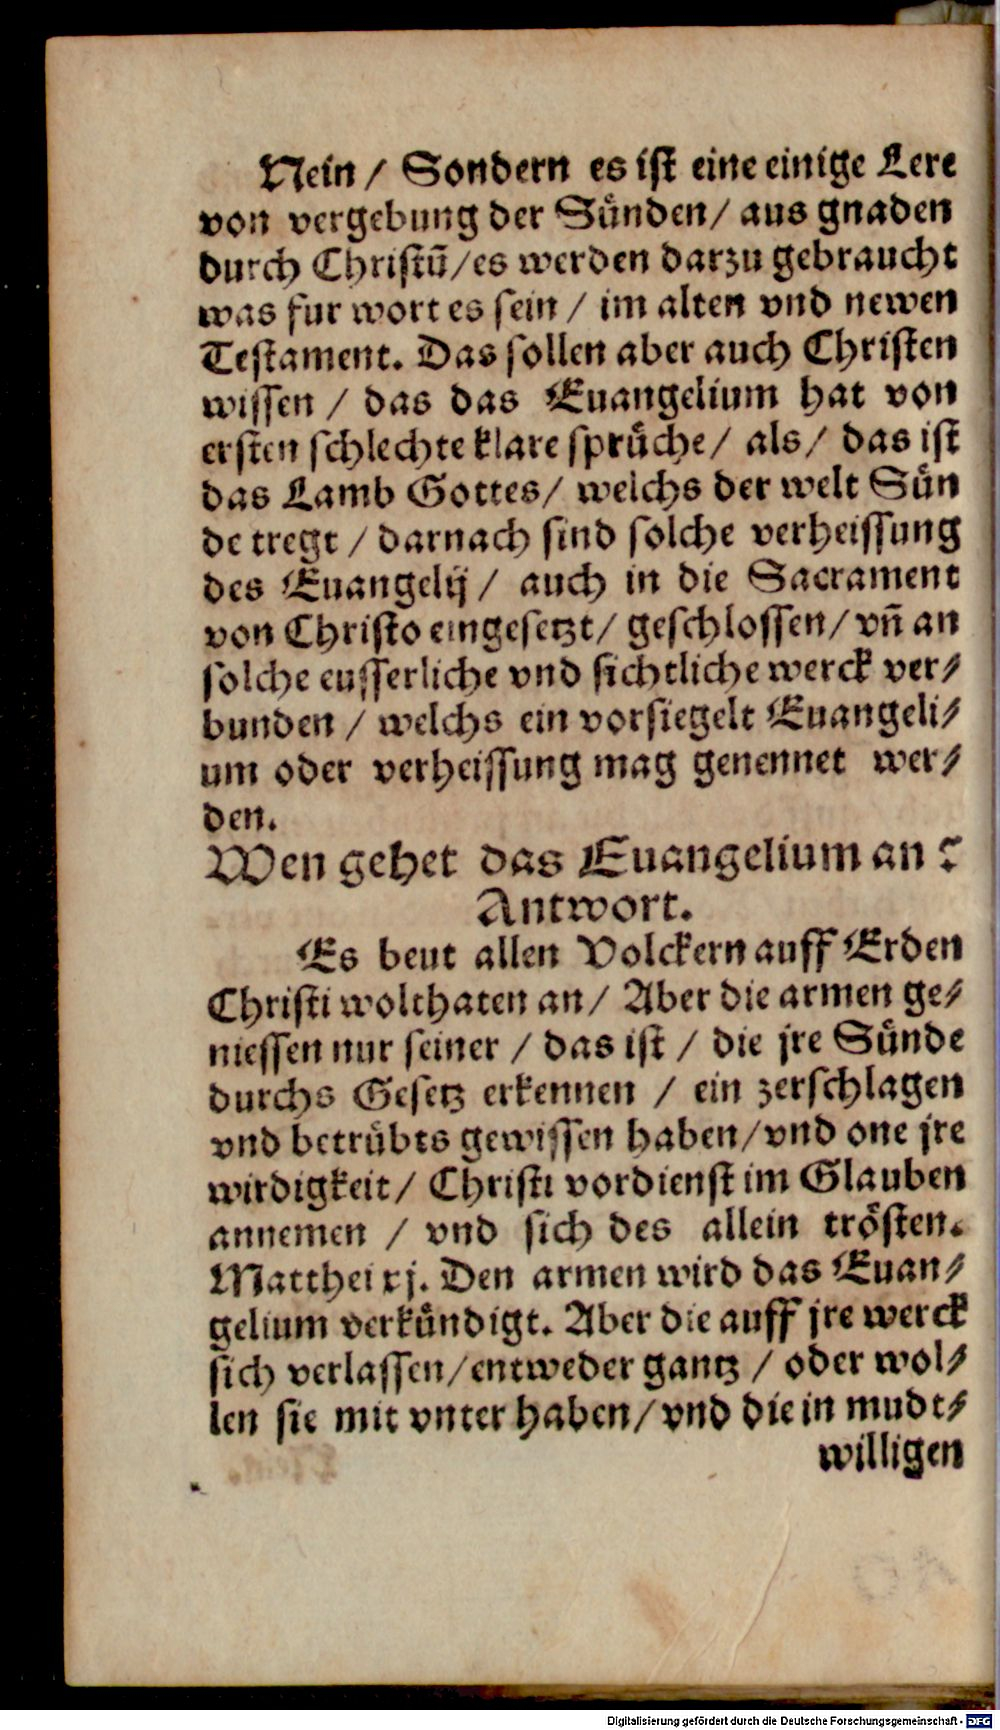 Nein / Sondern es ist eine einige Lere
von vergebung der Sünden / aus gnaden
durch Christū / es werden darzu gebraucht
was fur wort es sein / im alten vnd newen
Testament. Das sollen aber auch Christen
wissen / das das Euangelium hat von
ersten schlechte klare sprüche / als / das ist
das Lamb Gottes / welchs der welt Sün
de tregt / darnach sind solche verheissung
des Euangelij / auch in die Sacrament
von Christo eingesetzt / geschlossen / vn̄ an
solche eusserliche vnd sichtliche werck ver⸗
bunden / welchs ein vorsiegelt Euangeli⸗
um oder verheissung mag genennet wer⸗
den.
Wen gehet das Euangelium an?
Antwort.
Es beut allen Volckern auff Erden
Christi wolthaten an / Aber die armen ge⸗
niessen nur seiner / das ist / die jre Sünde
durchs Gesetz erkennen / ein zerschlagen
vnd betrübts gewissen haben / vnd one jre
wirdigkeit / Christi vordienst im Glauben
annemen / vnd sich des allein trösten.
Matthei xj. Den armen wird das Euan⸗
gelium verkündigt. Aber die auff jre werck
sich verlassen / entweder gantz / oder wol⸗
len sie mit vnter haben / vnd die in mudt⸗
willigen
Digitalisierung gefördert durch die Deutsche Forschungsgemeinschaft - DFG